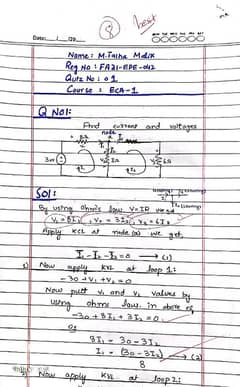 Q best
Date: 20
Name: M. Talha Malik
Reg No: FA21-EPE-042
Quiz No: 01
Course: ECA-1
Q No1:
Find current and voltages
node
8Ω I₁ I₃
30V V₂ 3Ω V₃ 6Ω
I₂
Sol:
By using ohm's law V=IR we get
V₁ = 8I₁, V₂ = 3I₂, V₃ = 6I₃
Apply KCL at node (a) we get,
I₁-I₂-I₃=0 → (1)
Now apply KVL at loop 1:
-30+V₁+V₂=0
Now put V₁ and V₂ values by
using ohms law in above eq
-30+8I₁+3I₂=0
8I₁ = 30-3I₂
I₁ = (30-3I₂) → (2)
8
Now apply KVL at loop 2: